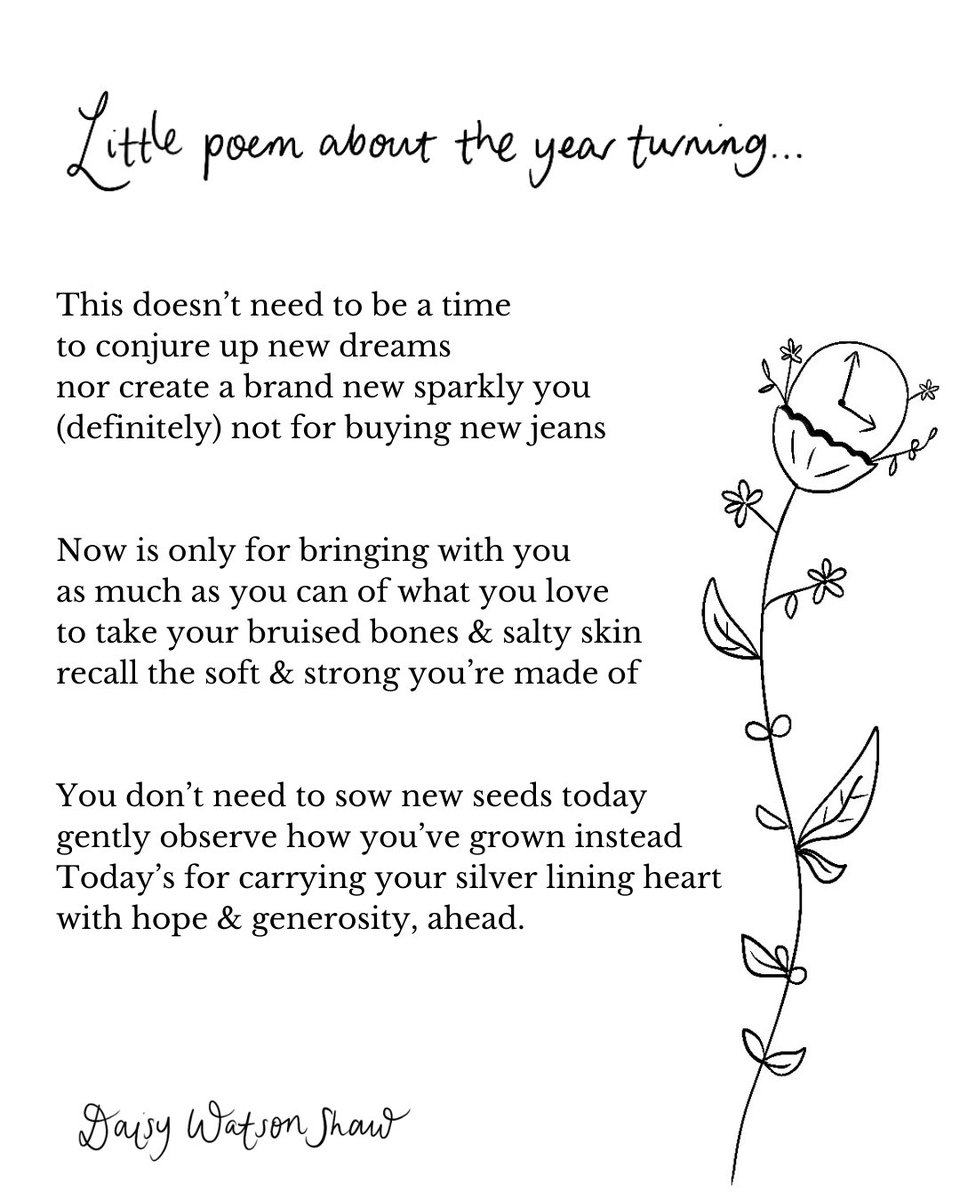 Little poem about the year turning...
This doesn’t need to be a time
to conjure up new dreams
nor create a brand new sparkly you
(definitely) not for buying new jeans
Now is only for bringing with you
as much as you can of what you love
to take your bruised bones & salty skin
recall the soft & strong you’re made of
You don’t need to sow new seeds today
gently observe how you’ve grown instead
Today’s for carrying your silver lining heart
with hope & generosity, ahead.
Daisy Watson Shaw